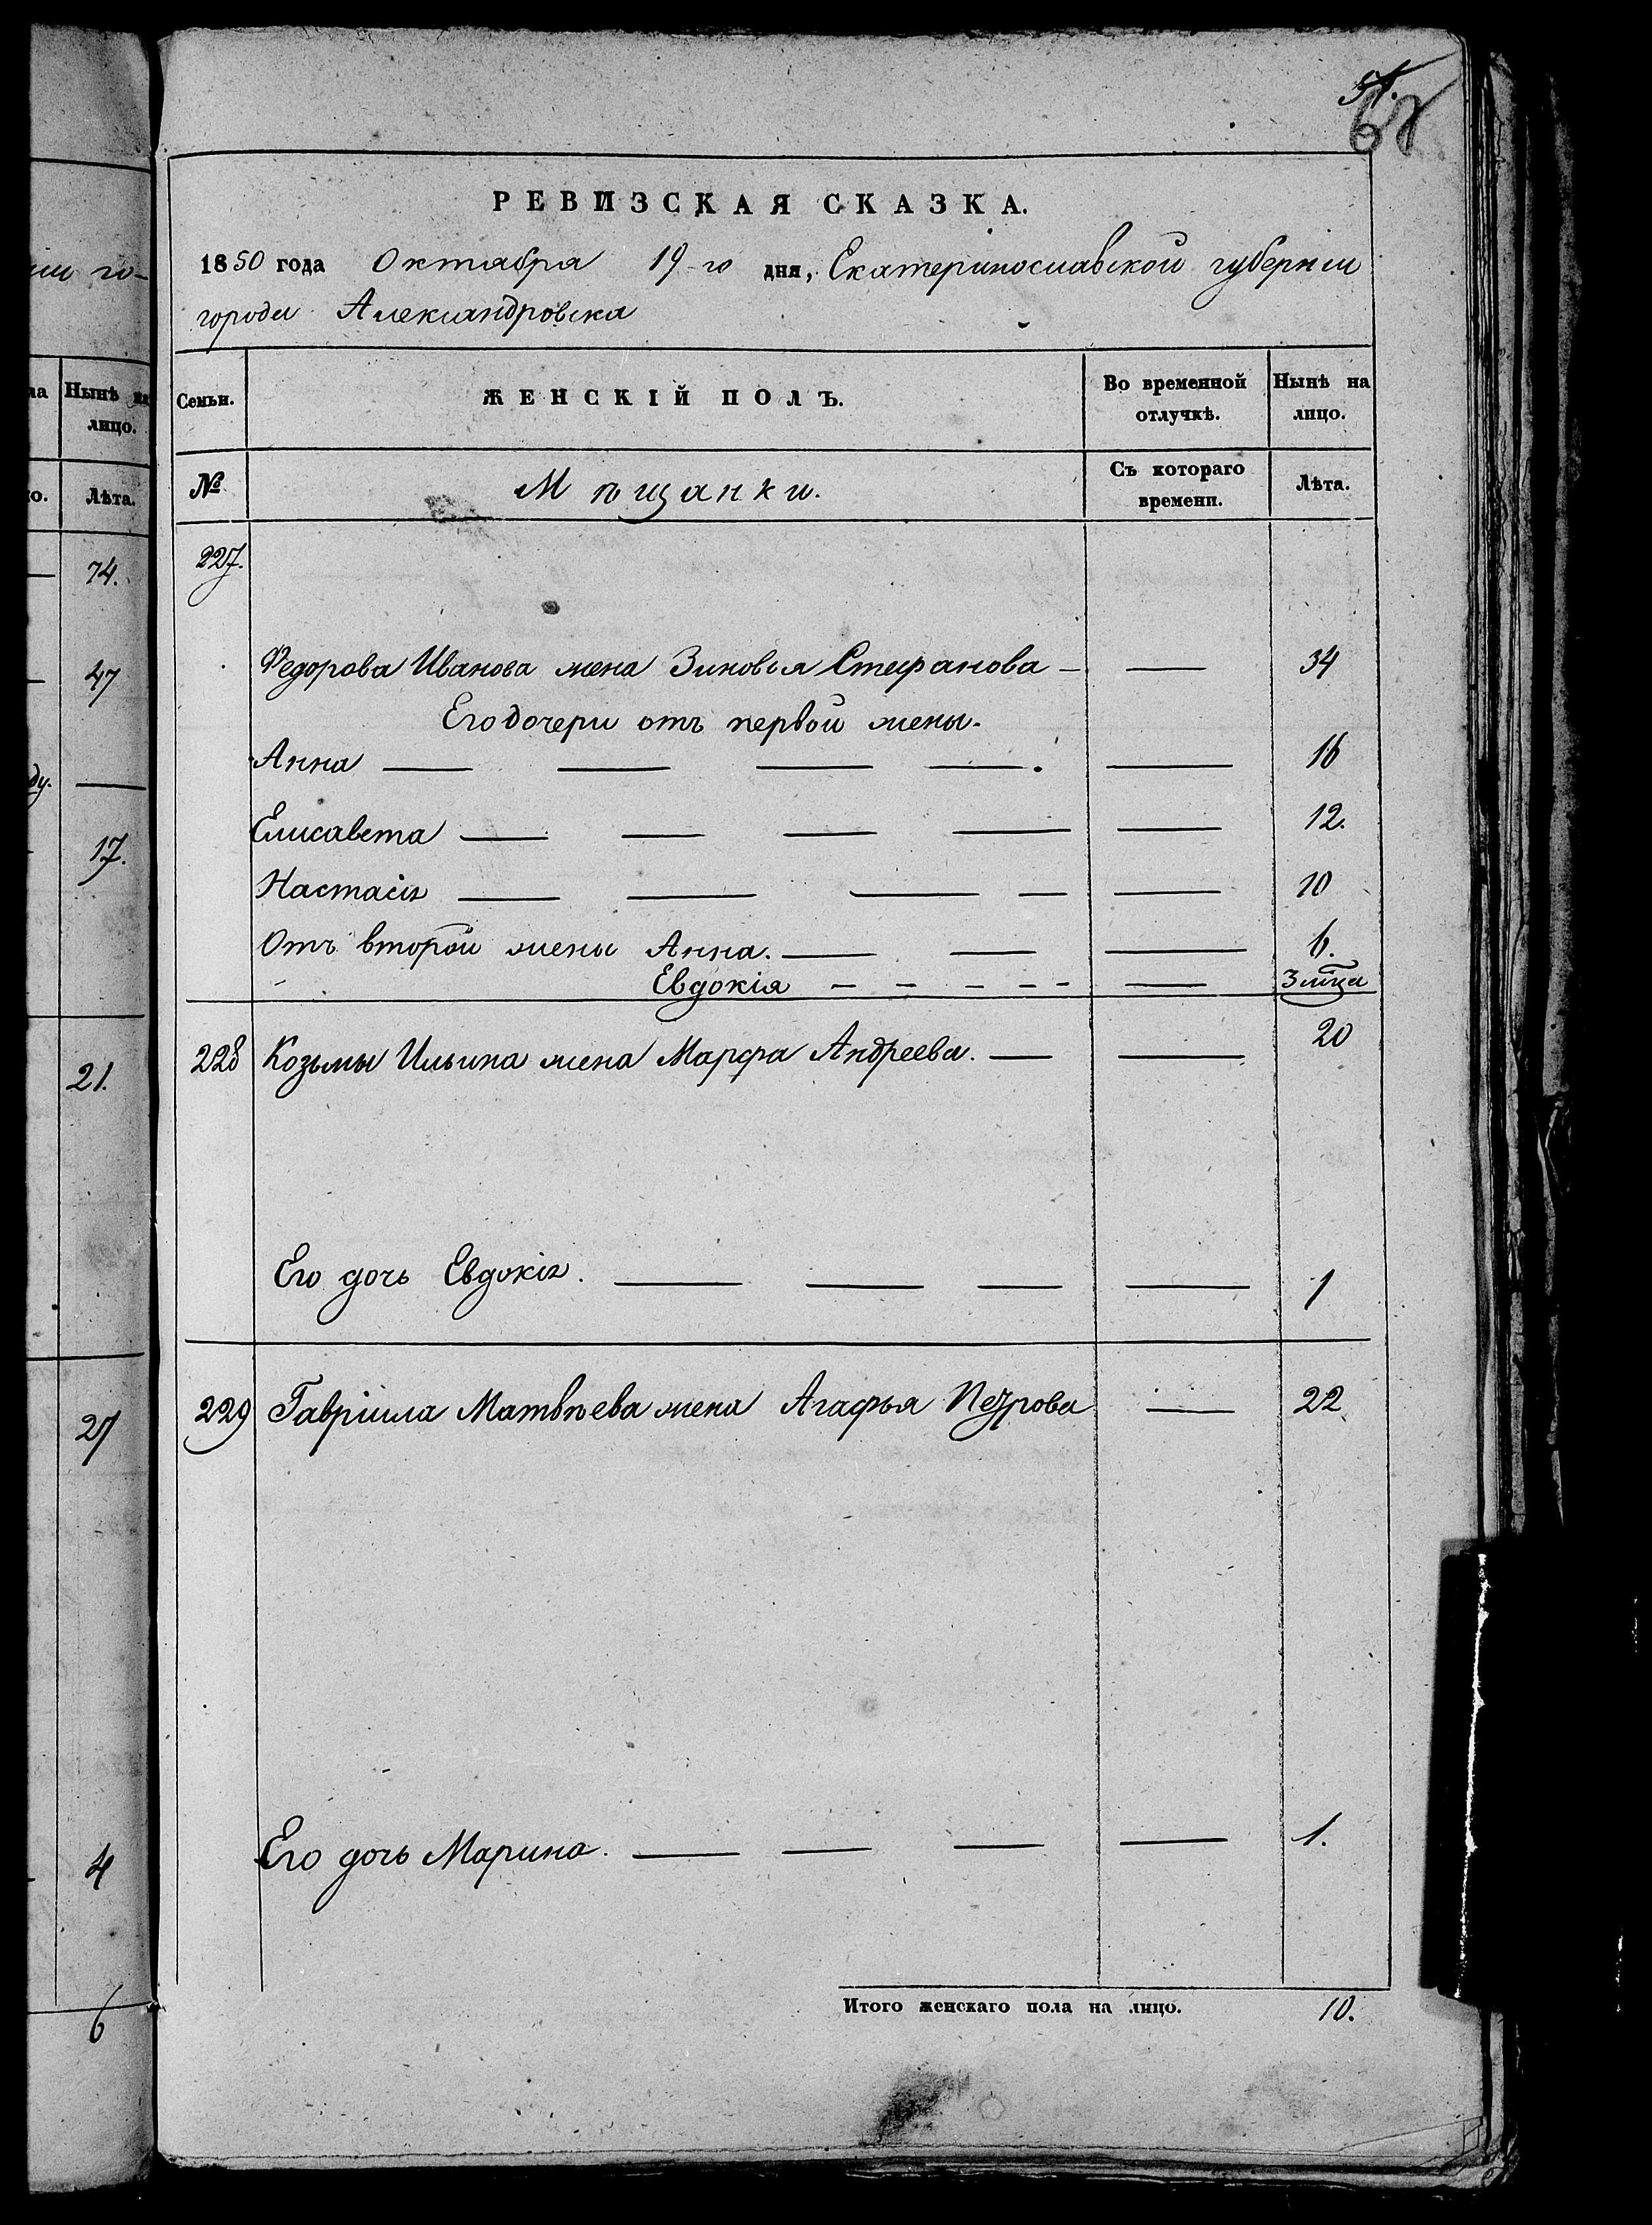 68
РЕВИЗСКАЯ СКАЗКА.
1850 года Октабра 19-го дня, Екатеринославской губерніи
города Александровска
Семьи.
ЖЕНСКІЙ ПОЛЪ.
Во временной отлучкѣ.
Нынѣ на лицо.
№
Мѣщанки.
Съ котораго времени.
Лѣта.
227.
Федорова Иванова жена Зиновья Стефанова — — 34
Его дочери отъ первой жены.
Анна — — — —. — 16
Елисавета — — — — — 12.
Настасія — — — — — 10
Отъ второй жены Анна. — — — 6.
Евдокія — — — — — — 3 мѣца
228 Козьмы Ильина жена Марфа Андреева. — — 20
Его дочь Евдокія. — — — — 1
229 Гавріила Матвѣева жена Агафья Петрова — 22
Его дочь Марина. — — — — 1.
Итого женскаго пола на лицо. 10.
ла
Нынѣ на
лицо.
го.
Лѣта.
74.
47
ду. —
17.
21.
27
4
6